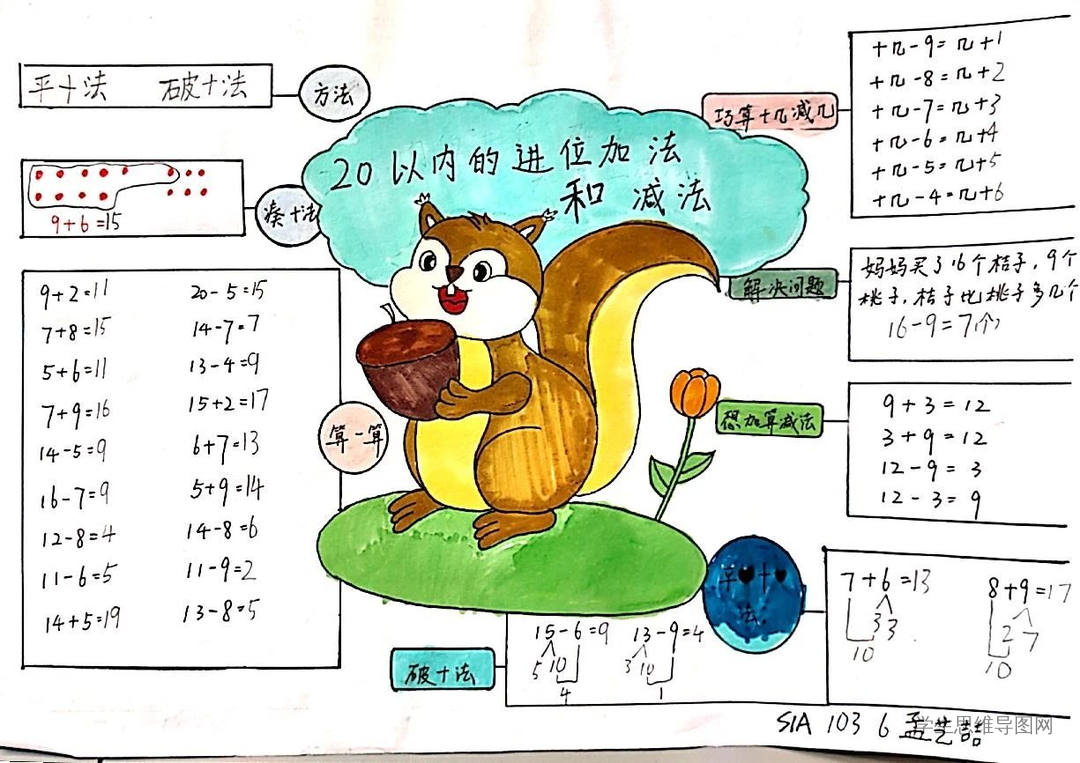 20以内的进位加法
和减法
平十法 破十法
方法
9+6=15
凑十法
9+2=11 20-5=15
7+8=15 14-7=7
5+6=11 13-4=9
7+9=16 15+2=17
14-5=9 6+7=13
16-7=9 5+9=14
12-8=4 14-8=6
11-6=5 11-9=2
14+5=19 13-8=5
算一算
巧算十几减几
十几-9=几+1
十几-8=几+2
十几-7=几+3
十几-6=几+4
十几-5=几+5
十几-4=几+6
解决问题
妈妈买了16个桔子,9个
桃子,桔子比桃子多几个
16-9=7(个)
想加算减法
9+3=12
3+9=12
12-9=3
12-3=9
平十
法
7+6=13 8+9=17
3 3 2 7
10 10
破十法
15-6=9 13-9=4
5 10 3 10
4 1
S1A 103 6 孟艺喆
学生思维导图网